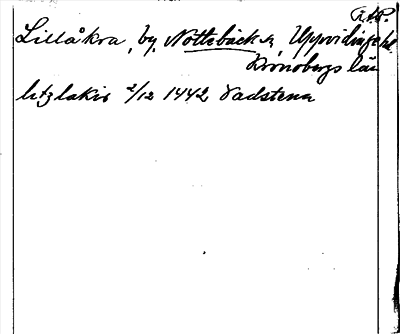 R.A.P.
Lillåkra, by, Nottebäck sn, Uppvidinge hd.
Kronobergs län
litzlakir 2/12 1442 Vadstena